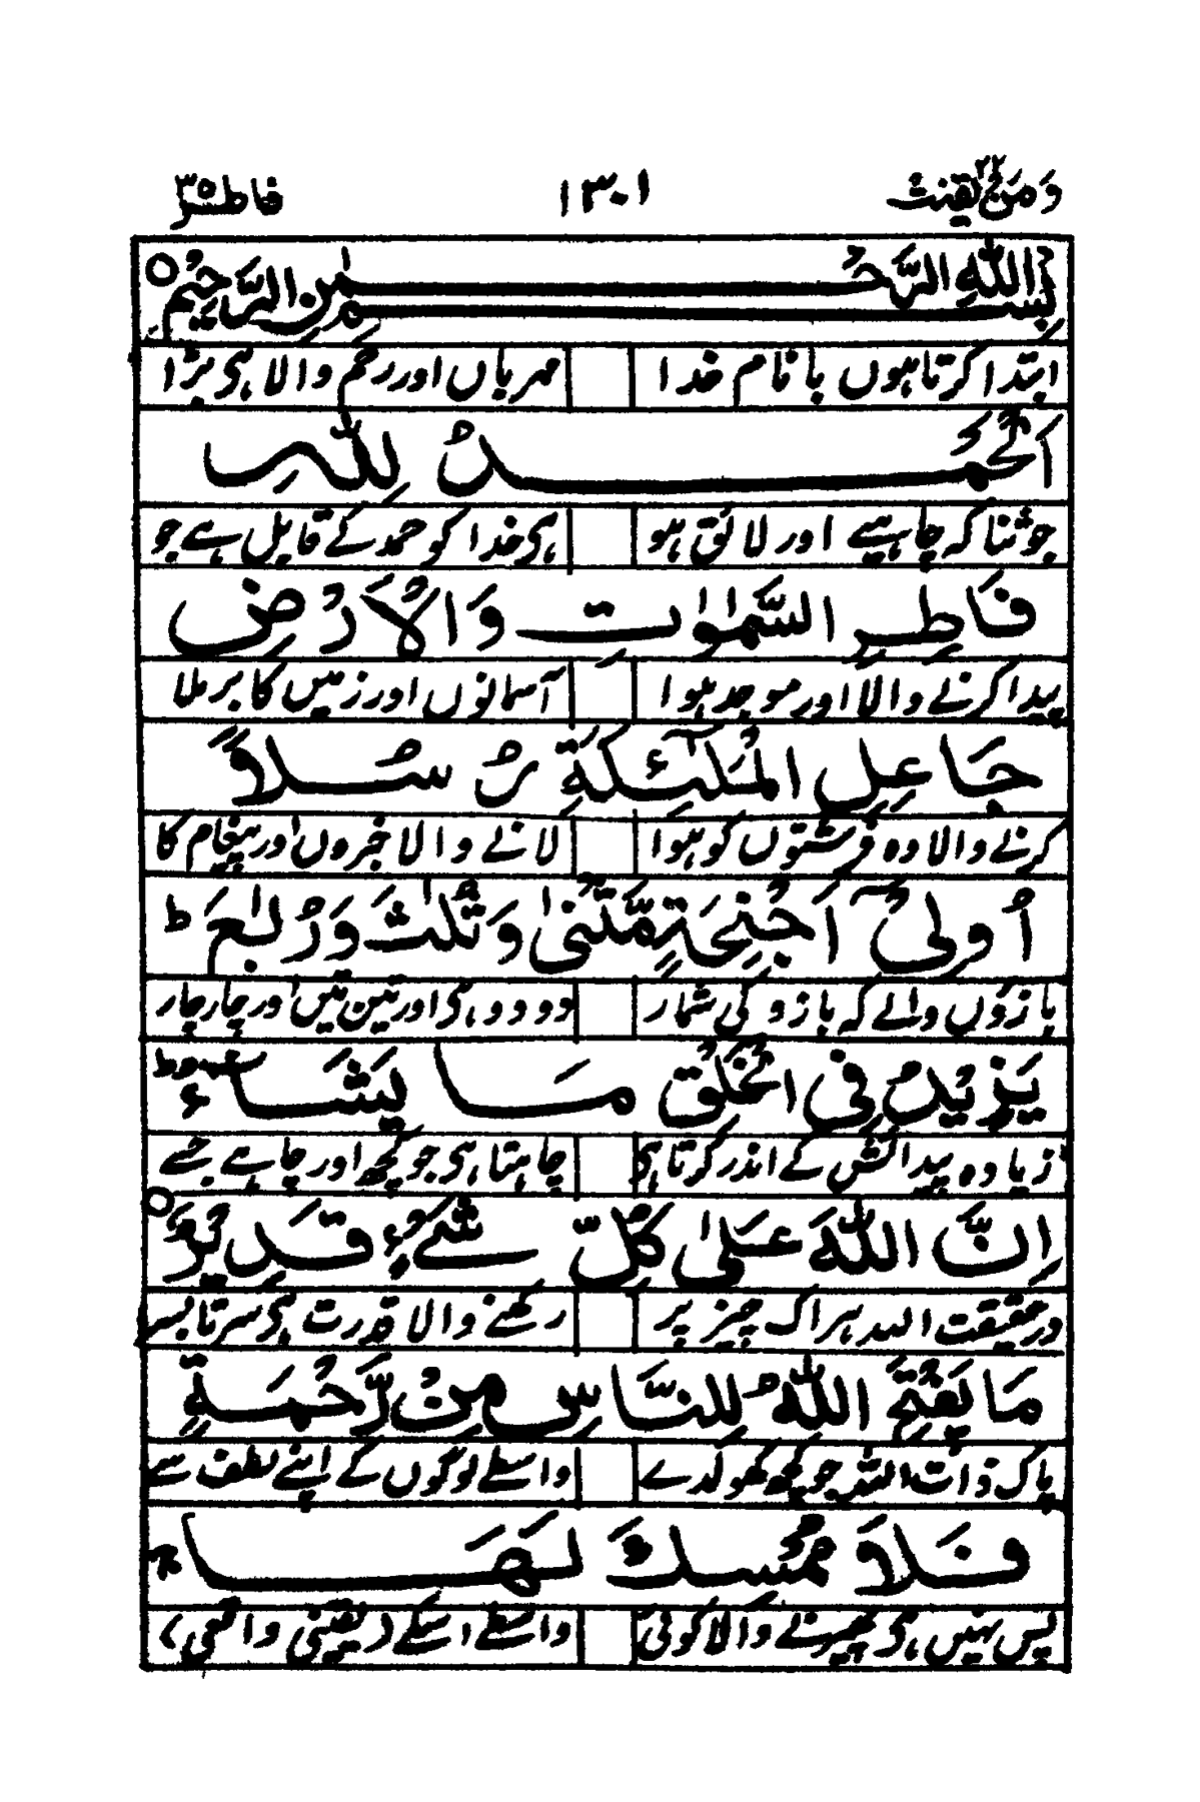 ومن یقنت ۲۲ ۱۳۰۱ فاطر ۳۵
بِسْمِ اللّٰهِ الرَّحْمٰنِ الرَّحِيْمِ ○
ابتدا کرتا ہوں با نام خدا مہرباں اور رحم والا ہی بڑا
اَلْحَمْدُ لِلّٰهِ
جو ثنا کہ چاہیے اور لائق ہو ہی خدا کو حمد کے قابل ہے جو
فَاطِرِ السَّمٰوٰتِ وَالْاَرْضِ
پیدا کرنے والا اور موجد ہوا آسمانوں اور زمیں کا برملا
جَاعِلِ الْمَلٰٓئِكَةِ رُسُلًا
کرنے والا وہ فرشتوں کو ہوا لانے والا خبروں اور پیغام کا
اُولِيْٓ اَجْنِحَةٍ مَّثْنٰى وَثُلٰثَ وَرُبٰعَ ؕ
بازوؤں والے کہ بازو کی شمار دو دو ہی اور تین تین اور چار چار
يَزِيْدُ فِي الْخَلْقِ مَا يَشَآءُ ؕ
زیادہ پیدائش کے اندر کرتا ہی چاہتا ہی جو کچھ اور چاہے جسے
اِنَّ اللّٰهَ عَلٰى كُلِّ شَيْءٍ قَدِيْرٌ ○
درحقیقت اللہ ہر اک چیز پر رکھنے والا قدرت ہی سرتابسر
مَا يَفْتَحِ اللّٰهُ لِلنَّاسِ مِنْ رَّحْمَةٍ
پاک ذات اللہ جو کچھ کھولدے واسطے لوگوں کے اپنے لطف سے
فَلَا مُمْسِكَ لَهَا ۚ
پس نہیں ہی پھیرنے والا کوئی واسطے اسکے (یقینی واقعی)